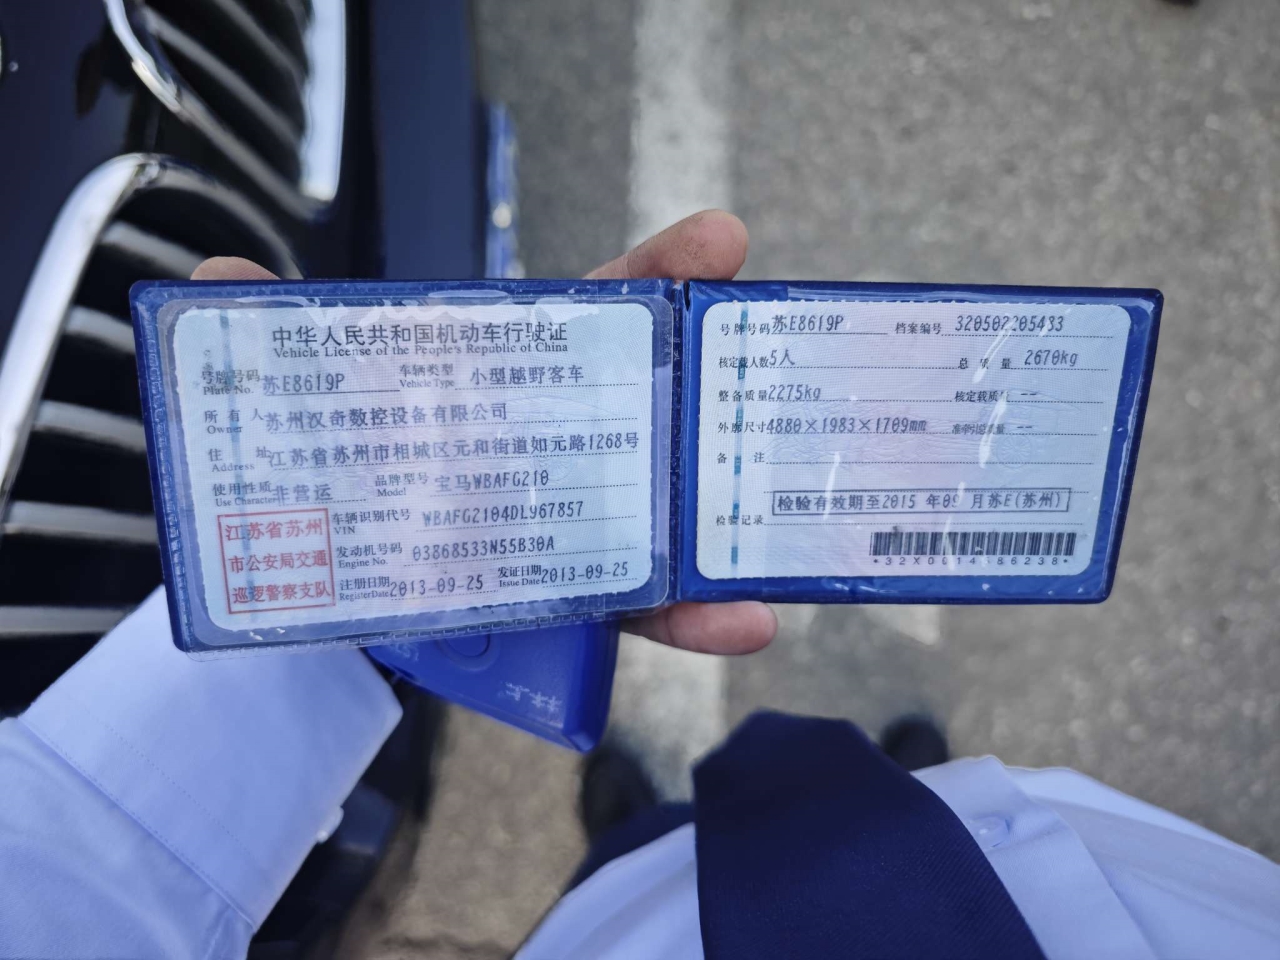 中华人民共和国机动车行驶证
Vehicle License of the People's Republic of China
号牌号码 苏E8619P 车辆类型 小型越野客车
Plate No. Vehicle Type
所有人 苏州汉奇数控设备有限公司
Owner
住址 江苏省苏州市相城区元和街道如元路1268号
Address
使用性质 非营运 品牌型号 宝马WBAFG210
Use Character Model
江苏省苏州
市公安局交通
巡逻警察支队
车辆识别代号 WBAFG2104DL967857
VIN
发动机号码 03868533N55B30A
Engine No.
注册日期 2013-09-25 发证日期 2013-09-25
Register Date Issue Date
号牌号码 苏E8619P 档案编号 320502205433
核定载人数 5人 总质量 2670kg
整备质量 2275kg 核定载质量 --
外廓尺寸 4880×1983×1709mm 准牵引总质量 --
备注
检验有效期至2015 年09 月苏E(苏州)
检验记录